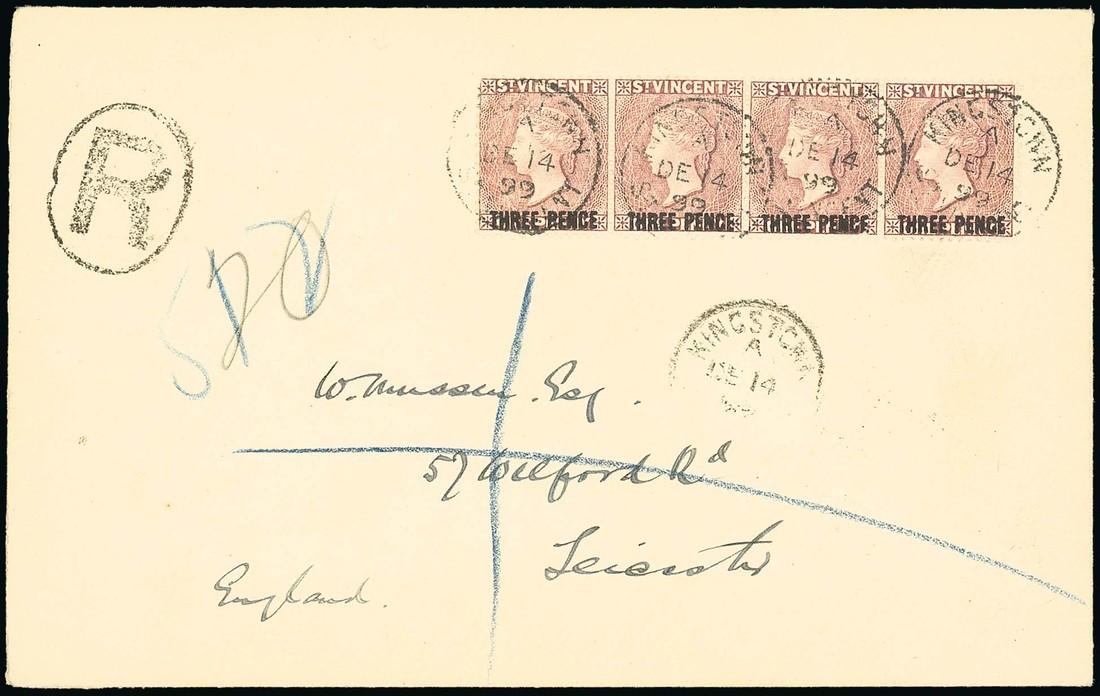 R
ST VINCENT ST VINCENT ST VINCENT ST VINCENT
KINGSTOWN
A
DE 14
99
THREE PENCE THREE PENCE THREE PENCE THREE PENCE
KINGSTOWN
A
DE 14
W. Mussen Esq.
57 Wilford Rd
Leicester
England.